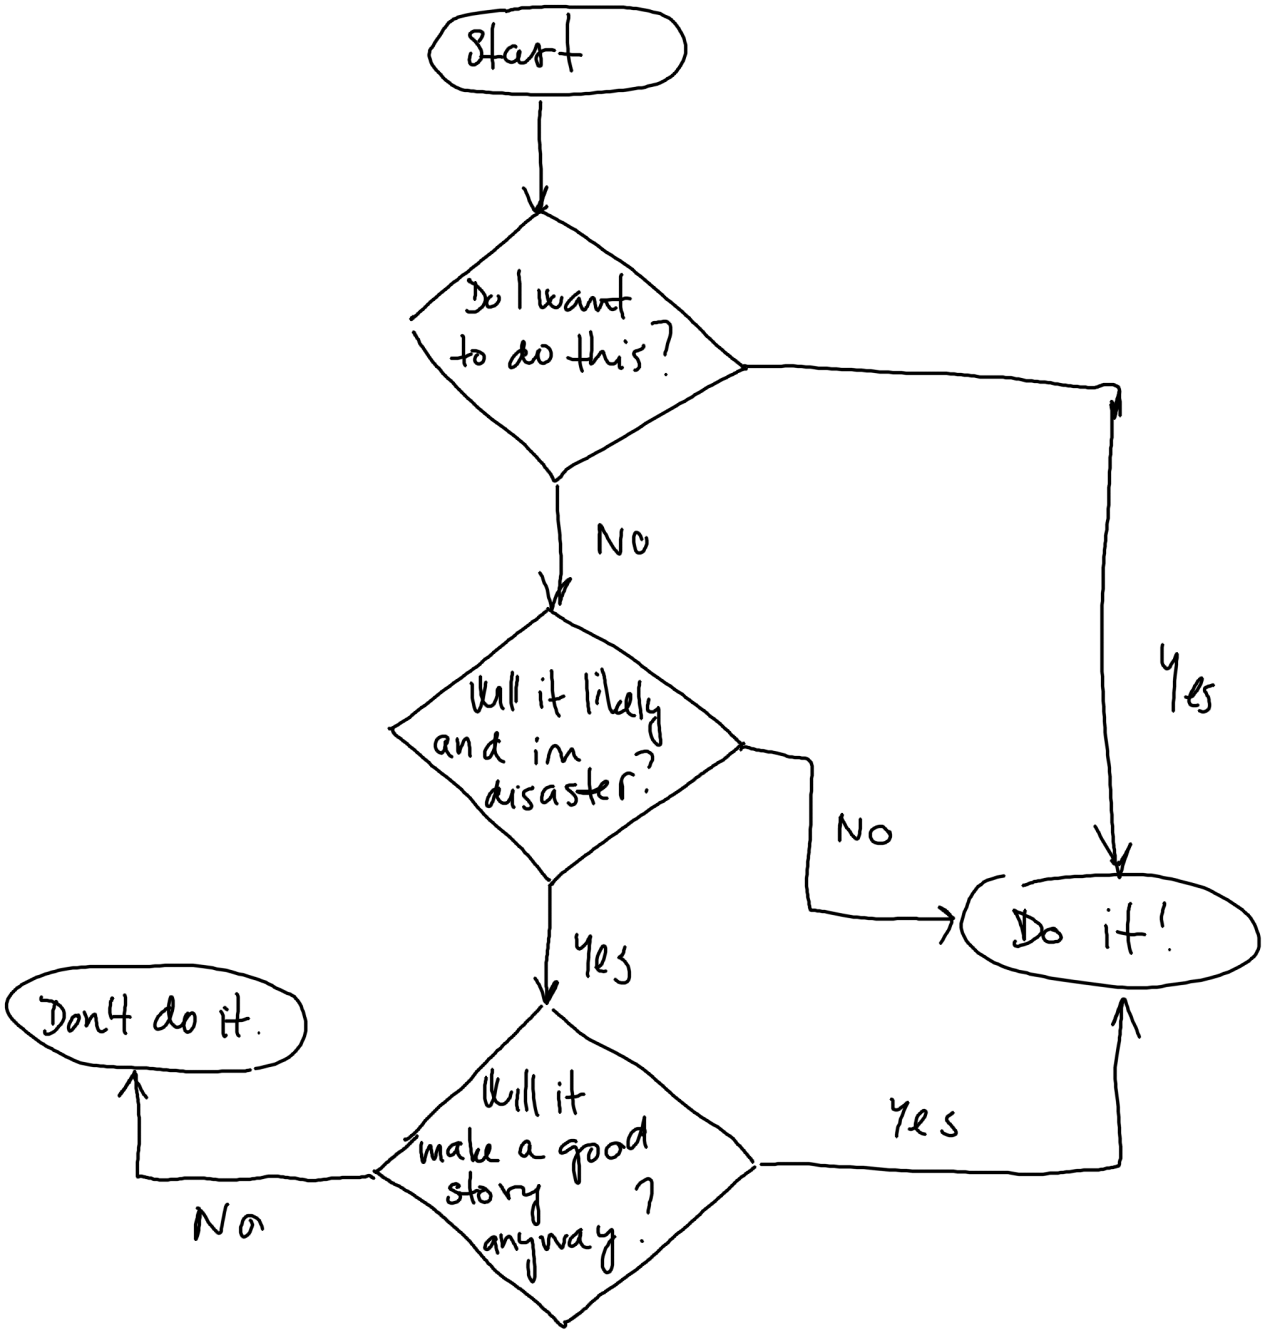 Start
Do I want
to do this?
Yes
No
Will it likely
and in
disaster?
No
Yes
Do it!
Don't do it.
Will it
make a good
story
anyway?
Yes
No